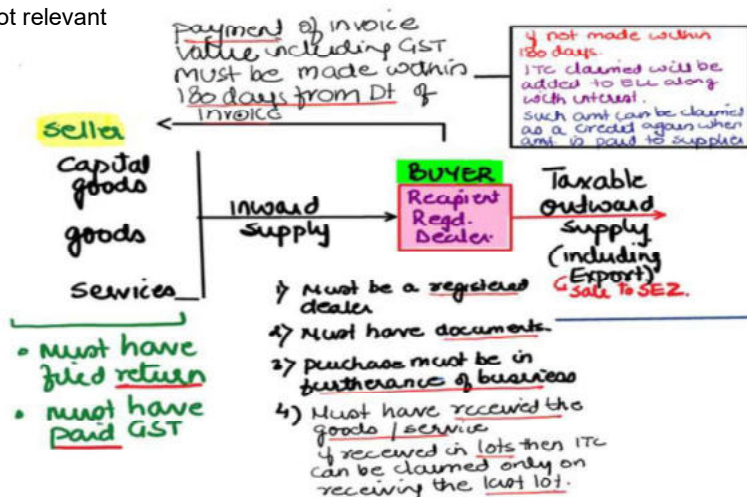 ot relevant
payment of invoice
value including GST
must be made within
180 days from Dt of
invoice
if not made within
180 days.
ITC claimed will be
added to ELL along
with interest.
such amt can be claimed
as a credit again when
amt is paid to supplier
seller
capital
goods
goods
services
inward
supply
BUYER
Recipient
Regd.
Dealer
Taxable
outward
supply
(including
Export)
sale to SEZ.
• must have
filed return
• must have
paid GST
1) Must be a registered
dealer
2) Must have documents.
3) purchase must be in
furtherance of business
4) Must have received the
goods / service
if received in lots then ITC
can be claimed only on
receiving the last lot.